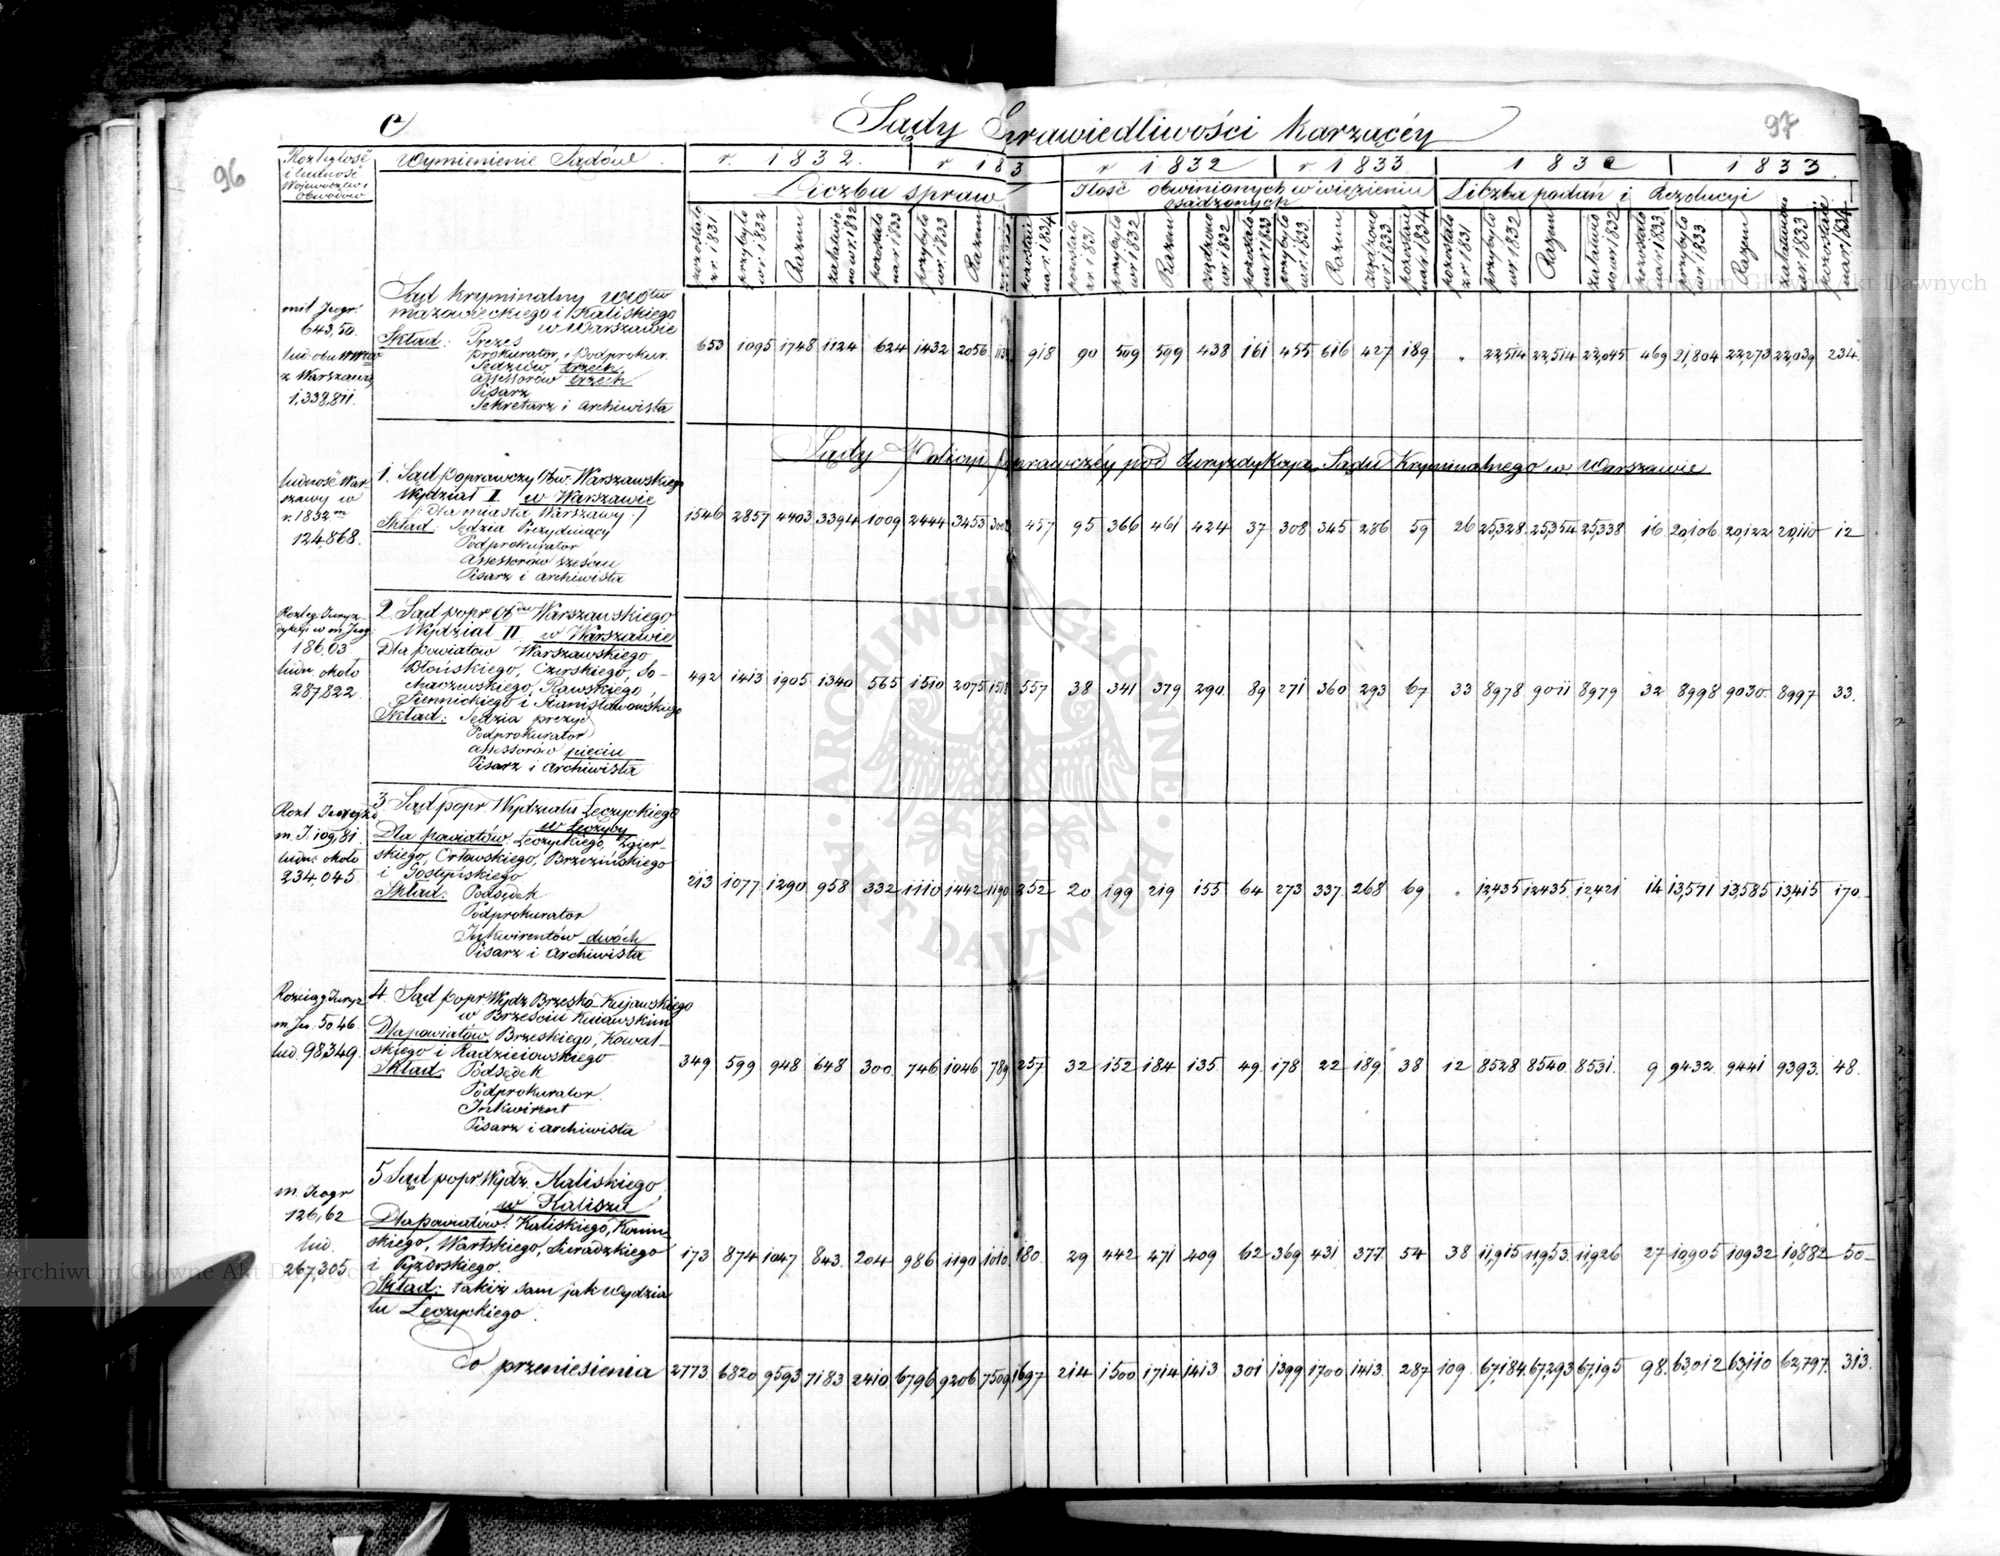 C
Sądy Sprawiedliwości Karzącéy
96
97
Rozległość i ludność Wojewodztw i Obwodów
Wymienienie Sądów
r. 1832. r 183 r 1832 r 1833 1832 1833.
Liczba spraw
Ilość obwinionych w więzieniu osadzonych
Liczba podań i Rezolucyi
pozostało z r. 1831
przybyło w r. 1832
Razem
załatwiono w r. 1832
pozostało na r. 1833
przybyło w r. 1833
Razem
pozostaie na r. 1834
pozostało z r. 1831
przybyło w r 1832
Razem
osądzono w r. 1832
pozostało na r 1833
przybyło w r. 1833
Razem
osądzono w r. 1833
pozostaie na r. 1834
pozostało z r. 1831
przybyło w r. 1832
Razem
załatwiono w r. 1832
pozostało na r. 1833
przybyło w r. 1833.
Razem
załatwiono w r. 1833
pozostaie na r. 1834
mil Jeogr.
643,50.
lud. obu WWów
z Warszawą
1,338,811.
Sąd Kryminalny Wwótw
mazowieckiego i Kaliskiego
w Warszawie
Skład: Prezes
Prokurator, i Podprokur.
Sędziów trzech
assessorów trzech
Pisarz
Sekretarz i archiwista
653 1095 1748 1124 624 1432 2056 918 90 509 599 438 161 455 616 427 189 " 22,514 22,514 22,045 469 21,804 22,273 22,039 234.
Sądy Policyi poprawczéy pod Juryzdykcyą Sądu Kryminalnego w Warszawie
ludność War-
szawy w
r. 1832m
124,868.
1. Sąd Poprawczy Obw. Warszawskiego
Wydział I w Warszawie
/: Dla miasta Warszawy :/
Skład: Sędzia Prezyduiący
Podprokurator
Assessorów sześciu
Pisarz i archiwista
1546 2857 4403 3394 1009 2444 3453 457 95 366 461 424 37 308 345 286 59 26 25,328 25,354 25,338 16 20,106 20,122 20,110 12
Rozleg. Juryz-
dykcyi w m. Jeog.
186,03.
ludn. około
287,822.
2 Sąd popr. Obdu Warszawskiego
Wydział II w Warszawie
Dla powiatów Warszawskiego
Błońskiego, Czerskiego, So-
chaczewskiego, Rawskiego,
Siennickiego i Stanisławowskiego
Skład: Sędzia prezyd
Podprokurator
assessorów pięciu
Pisarz i archiwista
492 1413 1905 1340 565 1510 2075 1518 557 38 341 379 290. 89 271 360 293 67 33 8978 9011 8979 32 8998 9030. 8997 33.
m. J. 109,81.
ludn. około
234,045.
3 Sąd popr. Wydziału Łęczyckiego
w Łęczycy
Dla powiatów Łęczyckiego, Zgier-
skiego, Orłowskiego, Brzezińskiego
i Gostyńskiego
Skład: Podsędek
Podprokurator
Inkwirentów dwóch
Pisarz i archiwista
213 1077 1290 958 332 1110 1442 1190 252 20 199 219 155 64 273 337. 268 69 " 12,435 12,435 12,421 14 13,571 13,585 13,415 170.
Rozciąg Juryz.
m Je. 50 46.
lud. 98,349.
4. Sąd popr. Wydz. Brzesko-Kujawskiego
w Brześciu Kuiawskim
Dla powiatów Brzeskiego, Kowal-
skiego i Radzieiowskiego
Skład: Podsędek
Podprokurator.
Inkwirent
Pisarz i archiwista
349 599 948 648 300. 746 1046 789 257 32 152 184 135. 49. 178 22 189. 38 12 8528 8540. 8531. 9 9432. 9441 9393. 48.
m. Jeogr
126,62
lud.
267,305.
5 Sąd popr. Wydz. Kaliskiego
w Kaliszu
Dla powiatów: Kaliskiego, Konin-
skiego, Wartskiego, Sieradzkiego
i Pyzdrskiego.
Skład: takiż sam jak wydzia-
łu Łęczyckiego.
173 874 1047 843. 204 986 1190 1010. 180. 29 442 471 409 62 369 431 377. 54 38 11,915 11,953 11,926 27 10,905 10,932 10,882 50
Do przeniesienia 2773 6820 9593 7183 2410 6796 9206 7509 1697 214 1500 1714 1413 301 1399 1700 1413. 287 109. 67,184. 67,293 67,195 98. 63,012 63,110 62,797. 313.
Archiwum Główne Akt Dawnych
ARCHIWUM GŁÓWNE AKT DAWNYCH